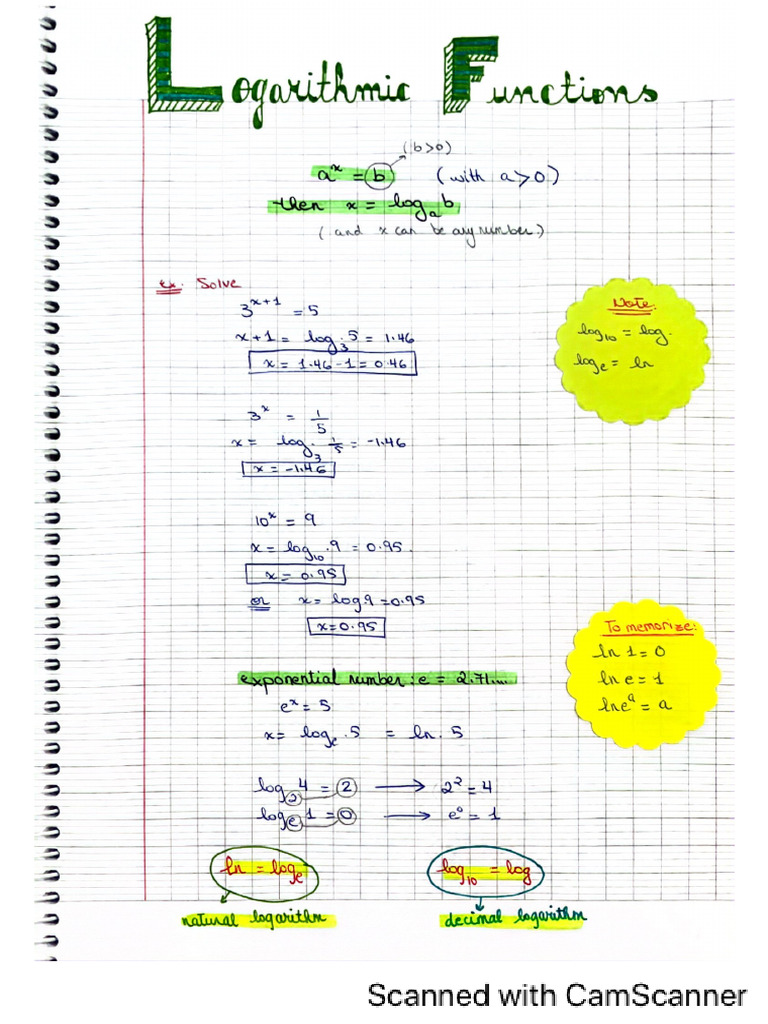 Logarithmic Functions
(b>0)
aˣ = b (with a>0)
then x = logₐb
(and x can be any number.)
ex. Solve
3ˣ⁺¹ = 5
x+1 = log₃.5 = 1.46
x = 1.46-1 = 0.46
Note.
log₁₀ = log.
logₑ = ln
3ˣ = 1/5
x = log₃. 1/5 = -1.46
x = -1.46
10ˣ = 9
x = log₁₀.9 = 0.95.
x = 0.95
or x = log.9 = 0.95
x = 0.95
To memorize:
ln 1 = 0
ln e = 1
ln eᵃ = a
exponential number: e = 2.71....
eˣ = 5
x = logₑ.5 = ln.5
log₂4 = 2 → 2² = 4
logₑ1 = 0 → e⁰ = 1
ln = logₑ
log₁₀ = log
natural logarithm
decimal logarithm
Scanned with CamScanner